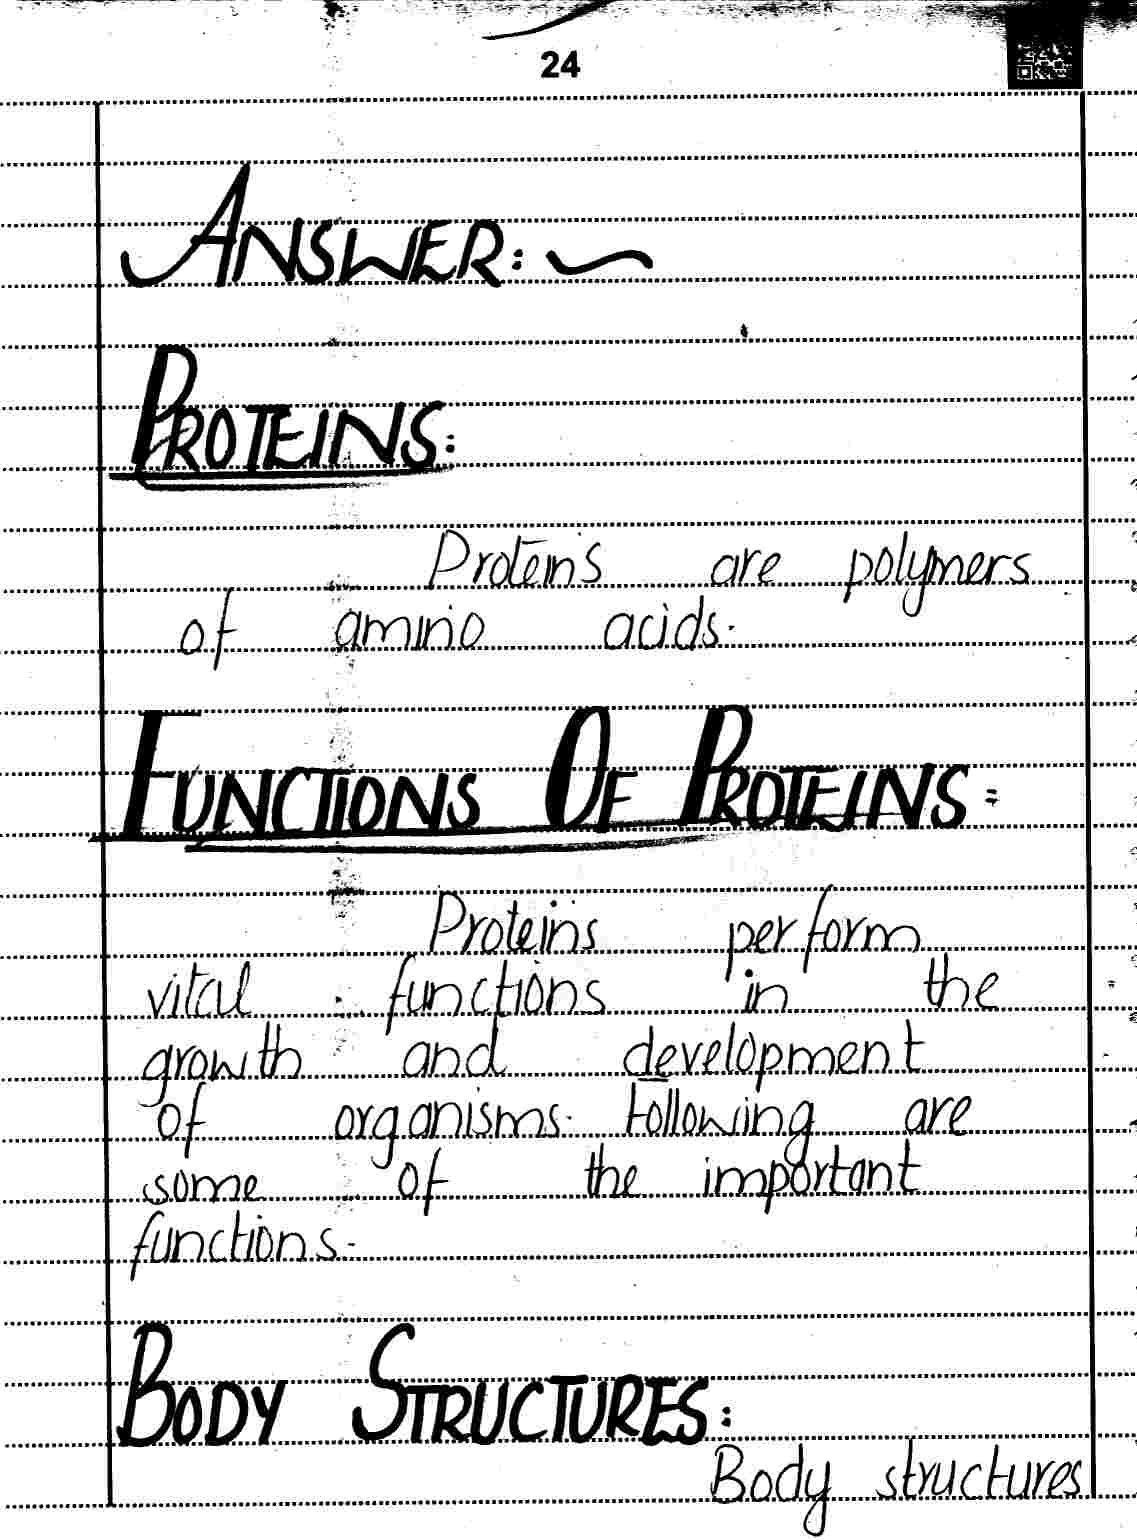 24
ANSWER:~
PROTEINS:
Proteins are polymers
of amino acids.
FUNCTIONS OF PROTEINS:
Proteins perform
vital functions in the
growth and development
of organisms. Following are
some of the important
functions.
BODY STRUCTURES:
Body structures